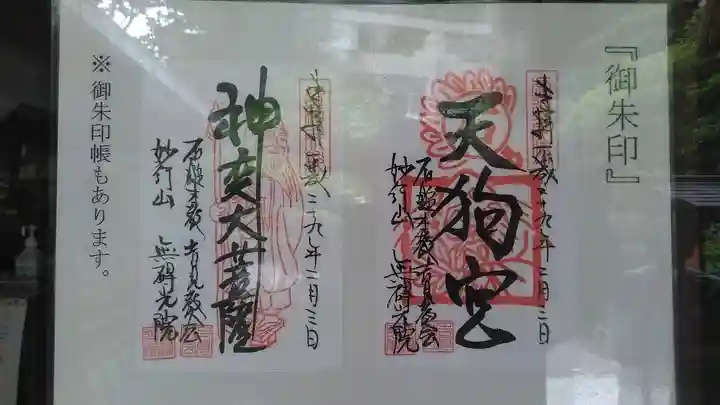 『御朱印』
二十九年二月三日
天狗宮
石鎚本教 吉見教会
妙行山 無碍光院
二十九年二月三日
神変大菩薩
石鎚本教 吉見教会
妙行山 無碍光院
※御朱印帳もあります。